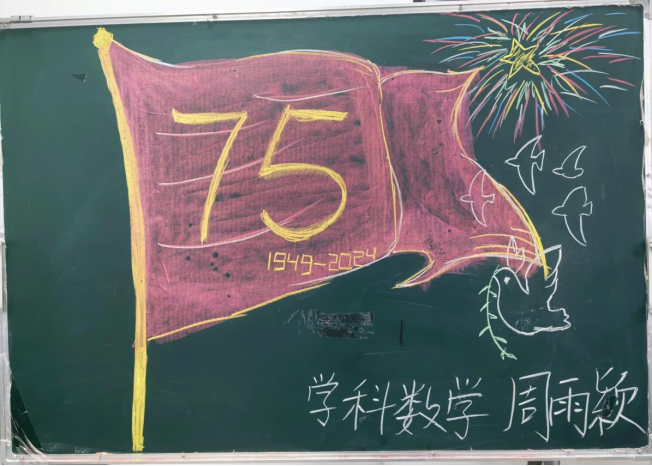 75
1949-2024
学科数学 周雨颖